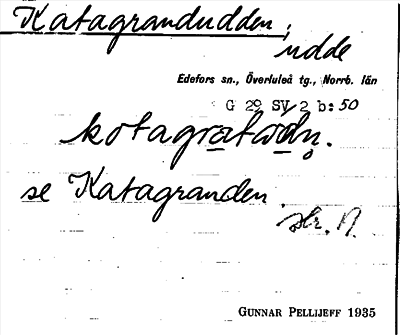 Katagranduddden,
udde
Edefors sn., Överluleå tg., Norrb. län
G 20 SV/2 b:50
kotagratwdn.
se Katagranden.
str. N.
GUNNAR PELLIJEFF 1935